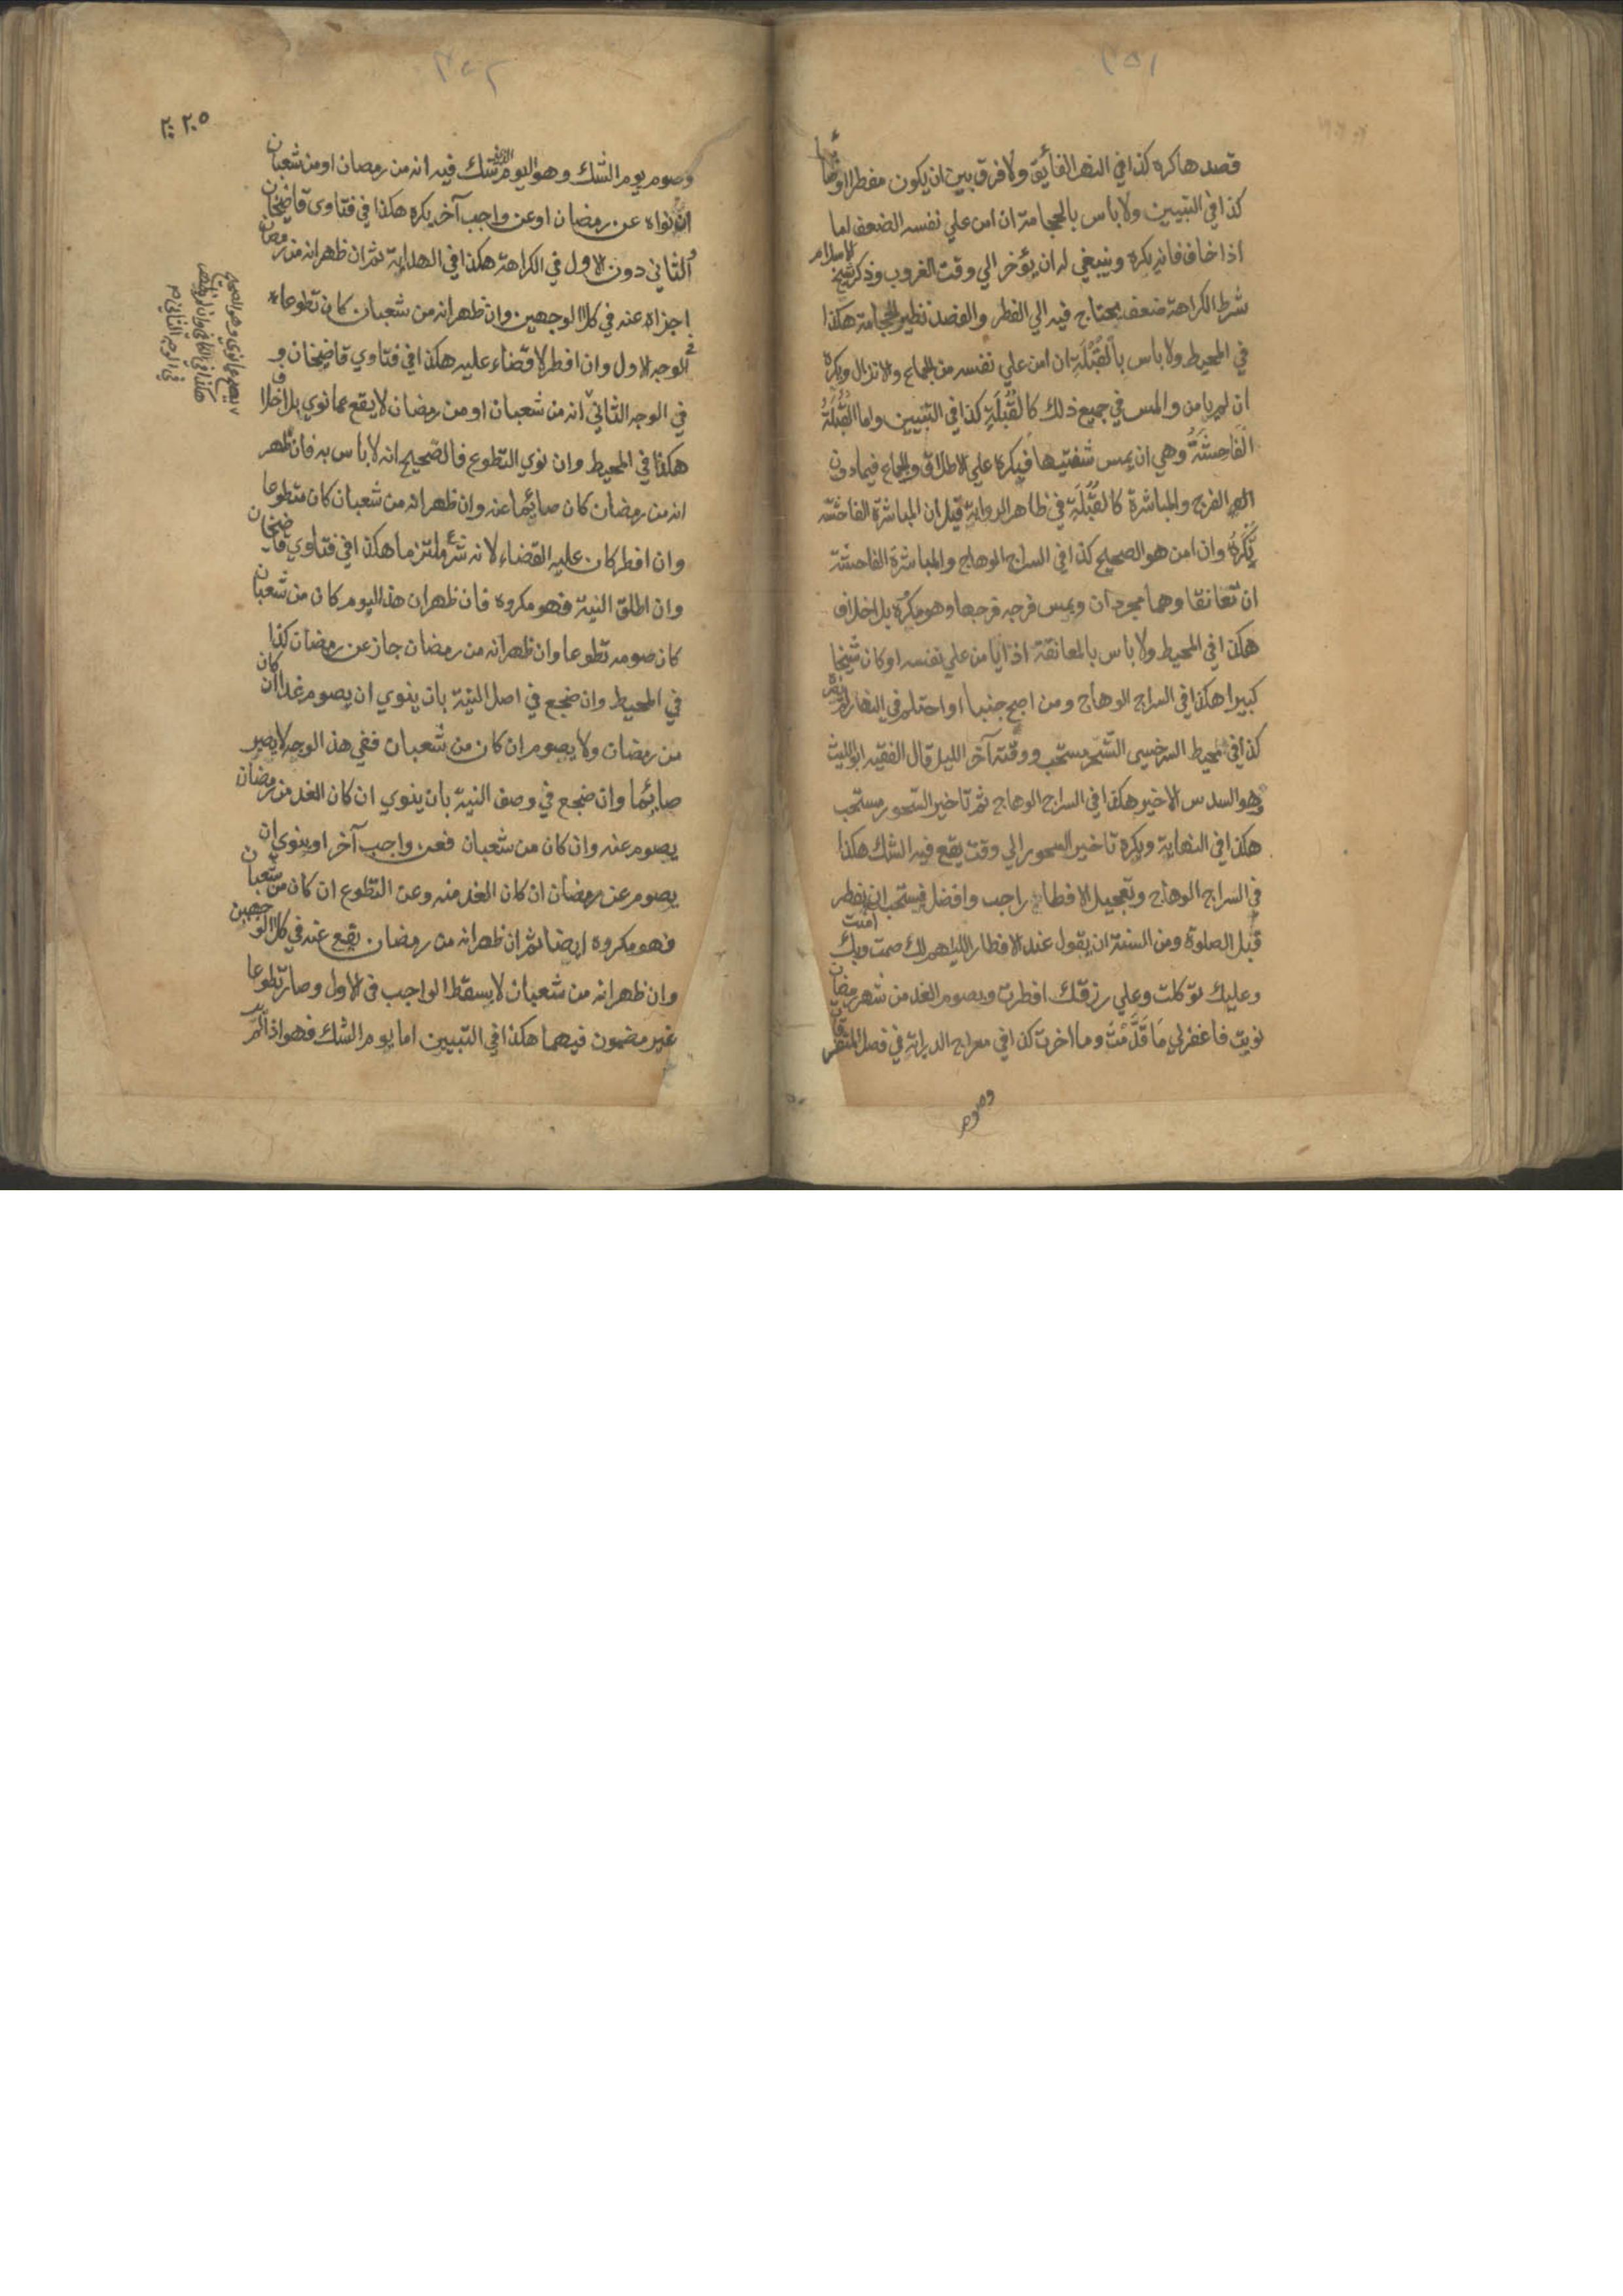 ٣٥١
قصدها كره كذا في النهر الفائق ولا فرق بين ان يكون مفطرا او صائما
كذا في التبيين ولا باس بالحجامة ان امن علي نفسه الضعف اما
اذا خاف فانه يكره وينبغي له ان يؤخر الي وقت الغروب وذكر شيخ الاسلام
شرط الكراهة ضعف يحتاج فيه الي الفطر والفصد نظير الحجامة هكذا
في المحيط ولا باس بالقُبْلَةِ ان امن علي نفسه من الجماع والانزال ويكره
ان لم يامن والمس في جميع ذلك كالقُبْلَةِ كذا في التبيين واما القُبْلَةُ
الفَاحِشَةُ وهي ان يمس شفتيها فيكره علي الاطلاق والجماع فيما دون
الفرج والمباشرة كالقُبْلَةِ في ظاهر الرواية قيل ان المباشرة الفاحشة
تكره وان امن هو الصحيح كذا في السراج الوهاج والمباشرة الفاحشة
ان تعانقا وهما مجردان ويمس فرجه فرجها وهو مكره بلا خلاف
هكذا في المحيط ولا باس بالمعانقة اذا يامن علي نفسه او كان شيخا
كبيرا هكذا في السراج الوهاج ومن اصبح جنبا او احتلم في النهار لم يضره
كذا في محيط السرخسي التسحر مستحب ووقته آخر الليل قال الفقيه ابو الليث
وهو السدس الاخير هكذا في السراج الوهاج ثم تاخير السحور مستحب
هكذا في النهاية ويكره تاخير السحور الي وقت يقع فيه الشك هكذا
في السراج الوهاج وتعجيل الافطار راجب وافضل فيستحب ان يفطر
قبل الصلوة ومن السنة ان يقول عند الافطار اللهم لك صمت وبك امنت
وعليك توكلت وعلي رزقك افطرت وبصوم الغد من شهر رمضان
نويت فاغفر لي مَا قَدَّمْتُ وما اخرت كذا في معراج الدراية في فصل المتفرقات
وصوم
٣٥٢
٢٠٥
وصوم يوم الشك وهو اليوم الذي شك فيه انه من رمضان او من شعبان
ان نواه عن رمضان او عن واجب آخر يكره هكذا في فتاوى قاضيخان
والثاني دون الاول في الكراهة هكذا في الهداية ثم ان ظهر انه من رمضان
اجزاه عنه في كلا الوجهين وان ظهر انه من شعبان كان تطوعا
في الوجه الاول وان افطر لا قضاء عليه هكذا في فتاوي قاضيخان و
في الوجه الثاني انه من شعبان او من رمضان لا يقع عما نوي بلا خلاف
هكذا في المحيط وان نوي التطوع فالصحيح انه لا باس به فان ظهر
انه من رمضان كان صائما عنه وان ظهر انه من شعبان كان متطوعا
وان افطر كان عليه القضاء لانه شرع ملتزما هكذا في فتاوي قاضيخان
وان اطلق النية فهو مكروه فان ظهر ان هذا اليوم كان من شعبان
كان صومه تطوعا وان ظهر انه من رمضان جاز عن رمضان كذا
في المحيط وان ضجع في اصل النية بان ينوي ان يصوم غدا ان كان
من رمضان ولا يصوم ان كان من شعبان ففي هذا الوجه لا يصير
صائما وان ضجع في وصف النية بان ينوي ان كان الغد من رمضان
يصوم عنه وان كان من شعبان فعن واجب آخر او ينوي ان
يصوم عن رمضان ان كان الغد منه وعن التطوع ان كان من شعبان
فهو مكروه ايضا ثم ان ظهر انه من رمضان يقع عنه في كلا الوجهين
وان ظهر انه من شعبان لا يسقط الواجب في الاول وصار تطوعا
غير مضمون فيهما هكذا في التبيين اما يوم الشك فهو اذا لم
يصح عما نوي وهو الصحيح
هكذا في الكافي وان لم يظهر
في الوجه الثاني م